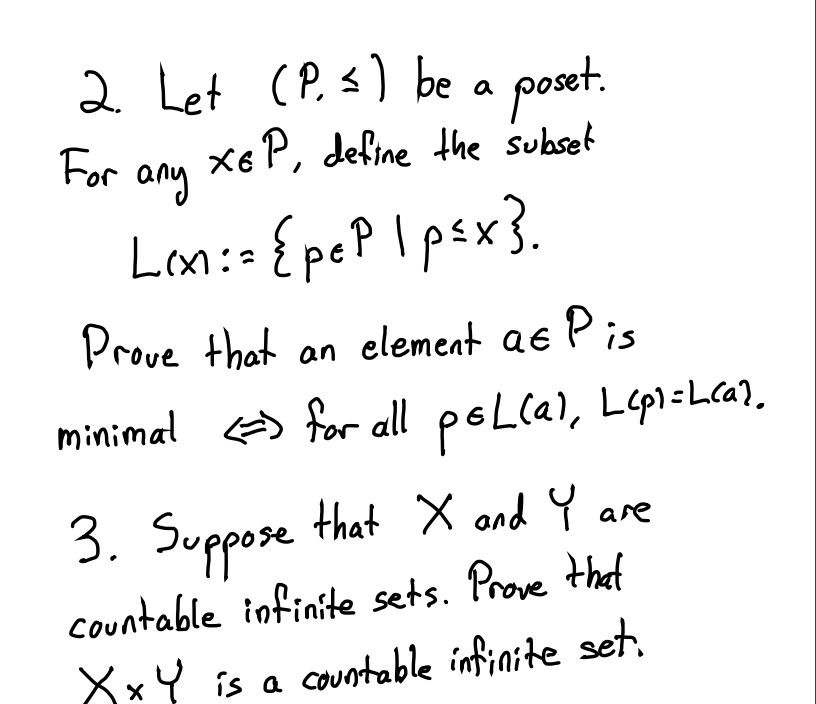 2. Let (P, ≤) be a poset.
For any x∈P, define the subset
L(x) := {p∈P | p≤x}.
Prove that an element a∈P is
minimal ⇔ for all p∈L(a), L(p)=L(a).
3. Suppose that X and Y are
countable infinite sets. Prove that
X×Y is a countable infinite set.